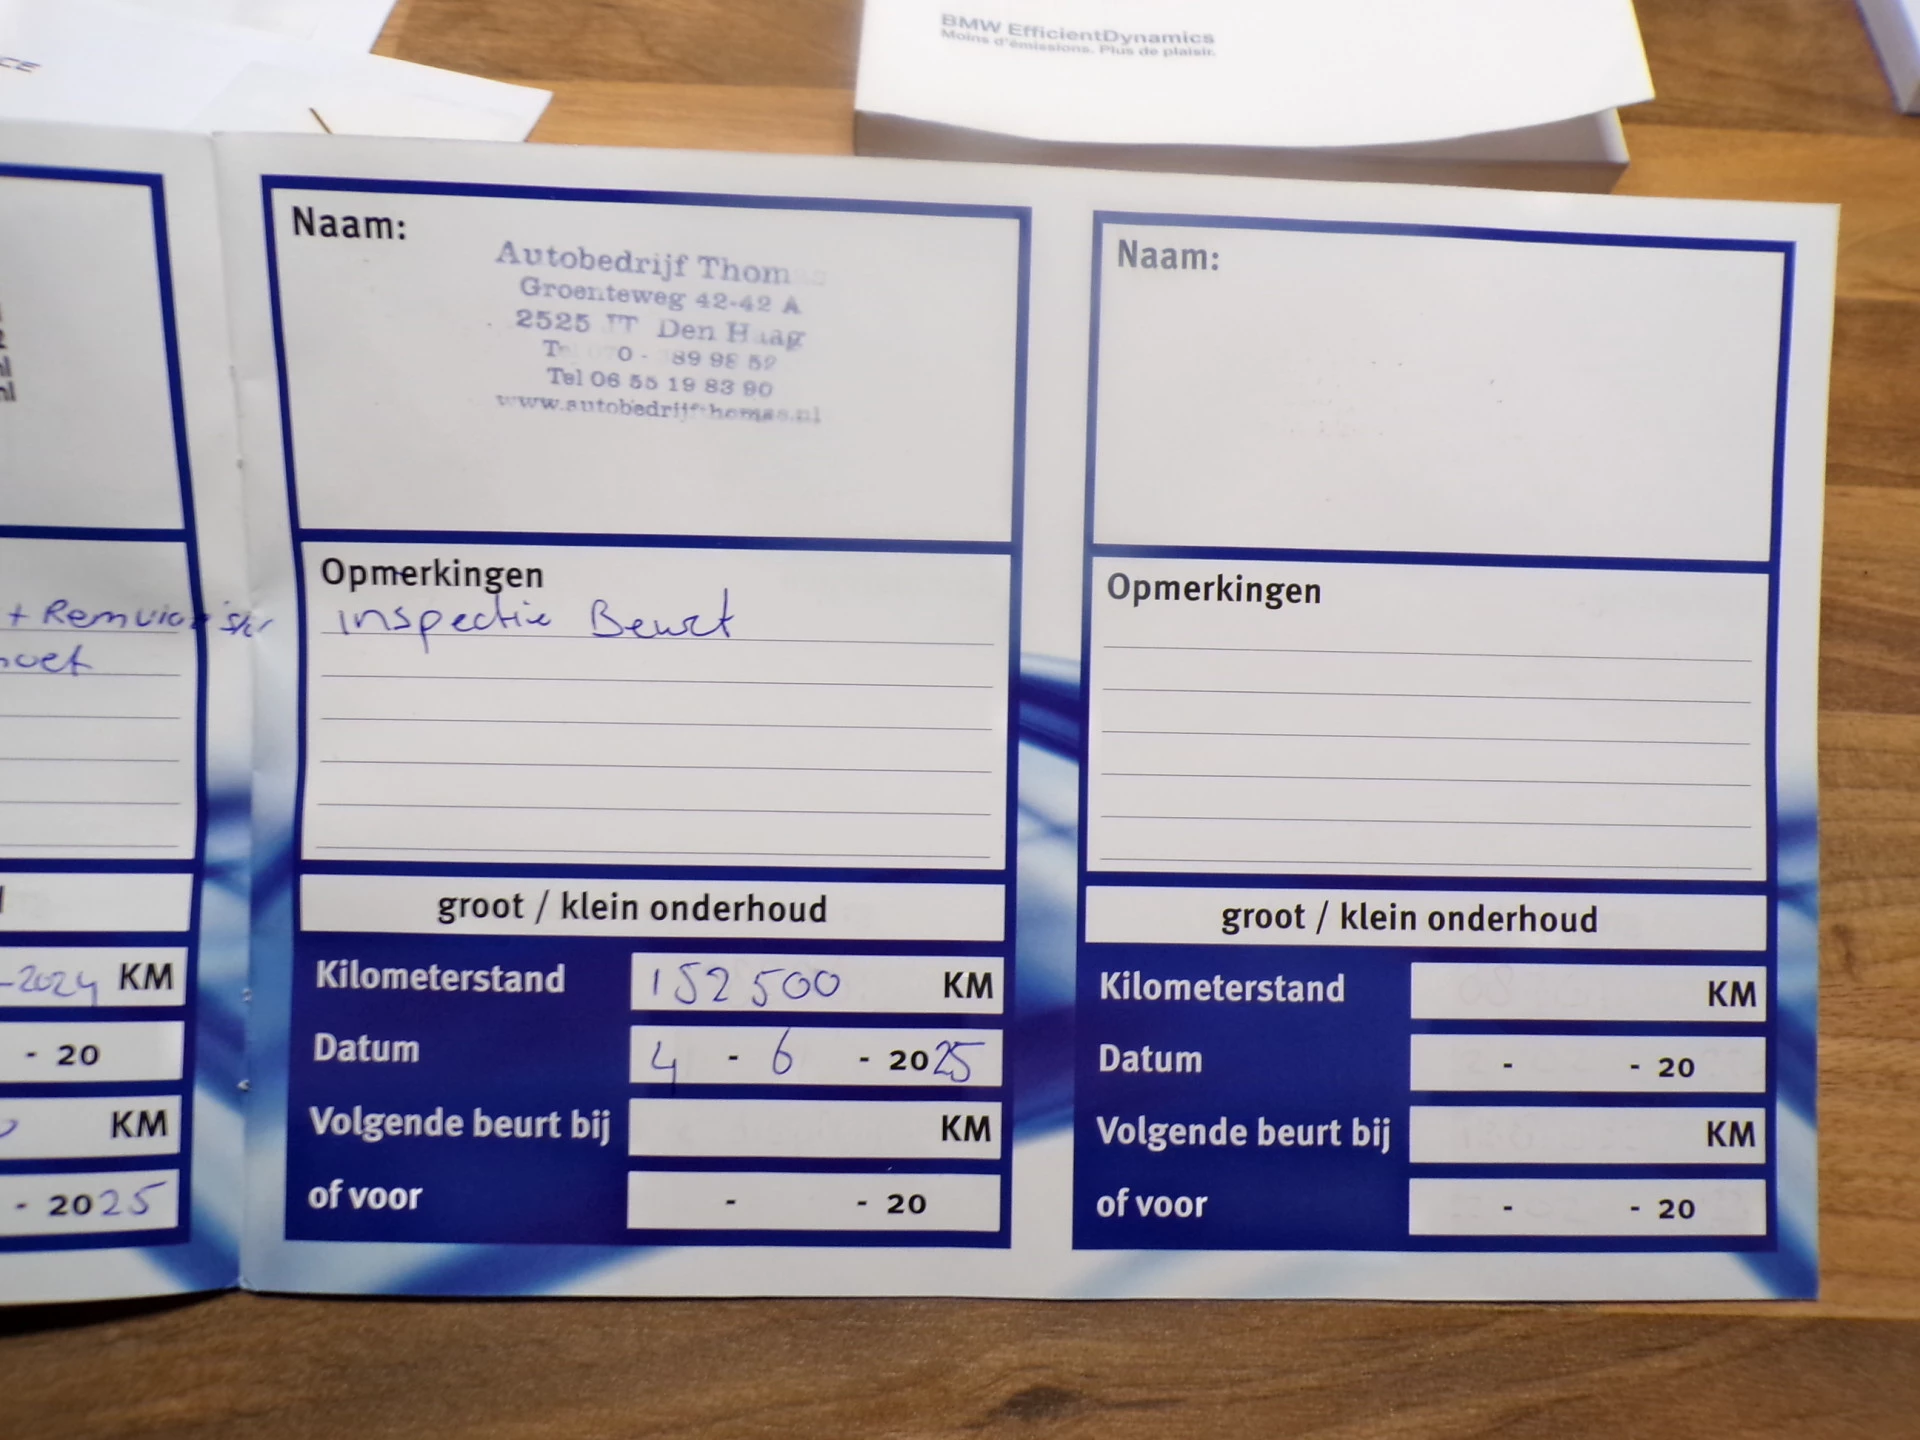 CE
BMW EfficientDynamics
Moins d'émissions. Plus de plaisir.
nl
nl
+
-2024 KM
- 20
KM
- 2025
Naam:
Autobedrijf Thomas
Groenteweg 42-42 A
2525 Den Haag
Tel 06 55 19 83 90
www.autobedrijfthomas.nl
Opmerkingen
inspectie Beurt
groot / klein onderhoud
Kilometerstand 152500 KM
Datum 4 - 6 - 2025
Volgende beurt bij KM
of voor - - 20
Naam:
Opmerkingen
groot / klein onderhoud
Kilometerstand KM
Datum - - 20
Volgende beurt bij KM
of voor - - 20